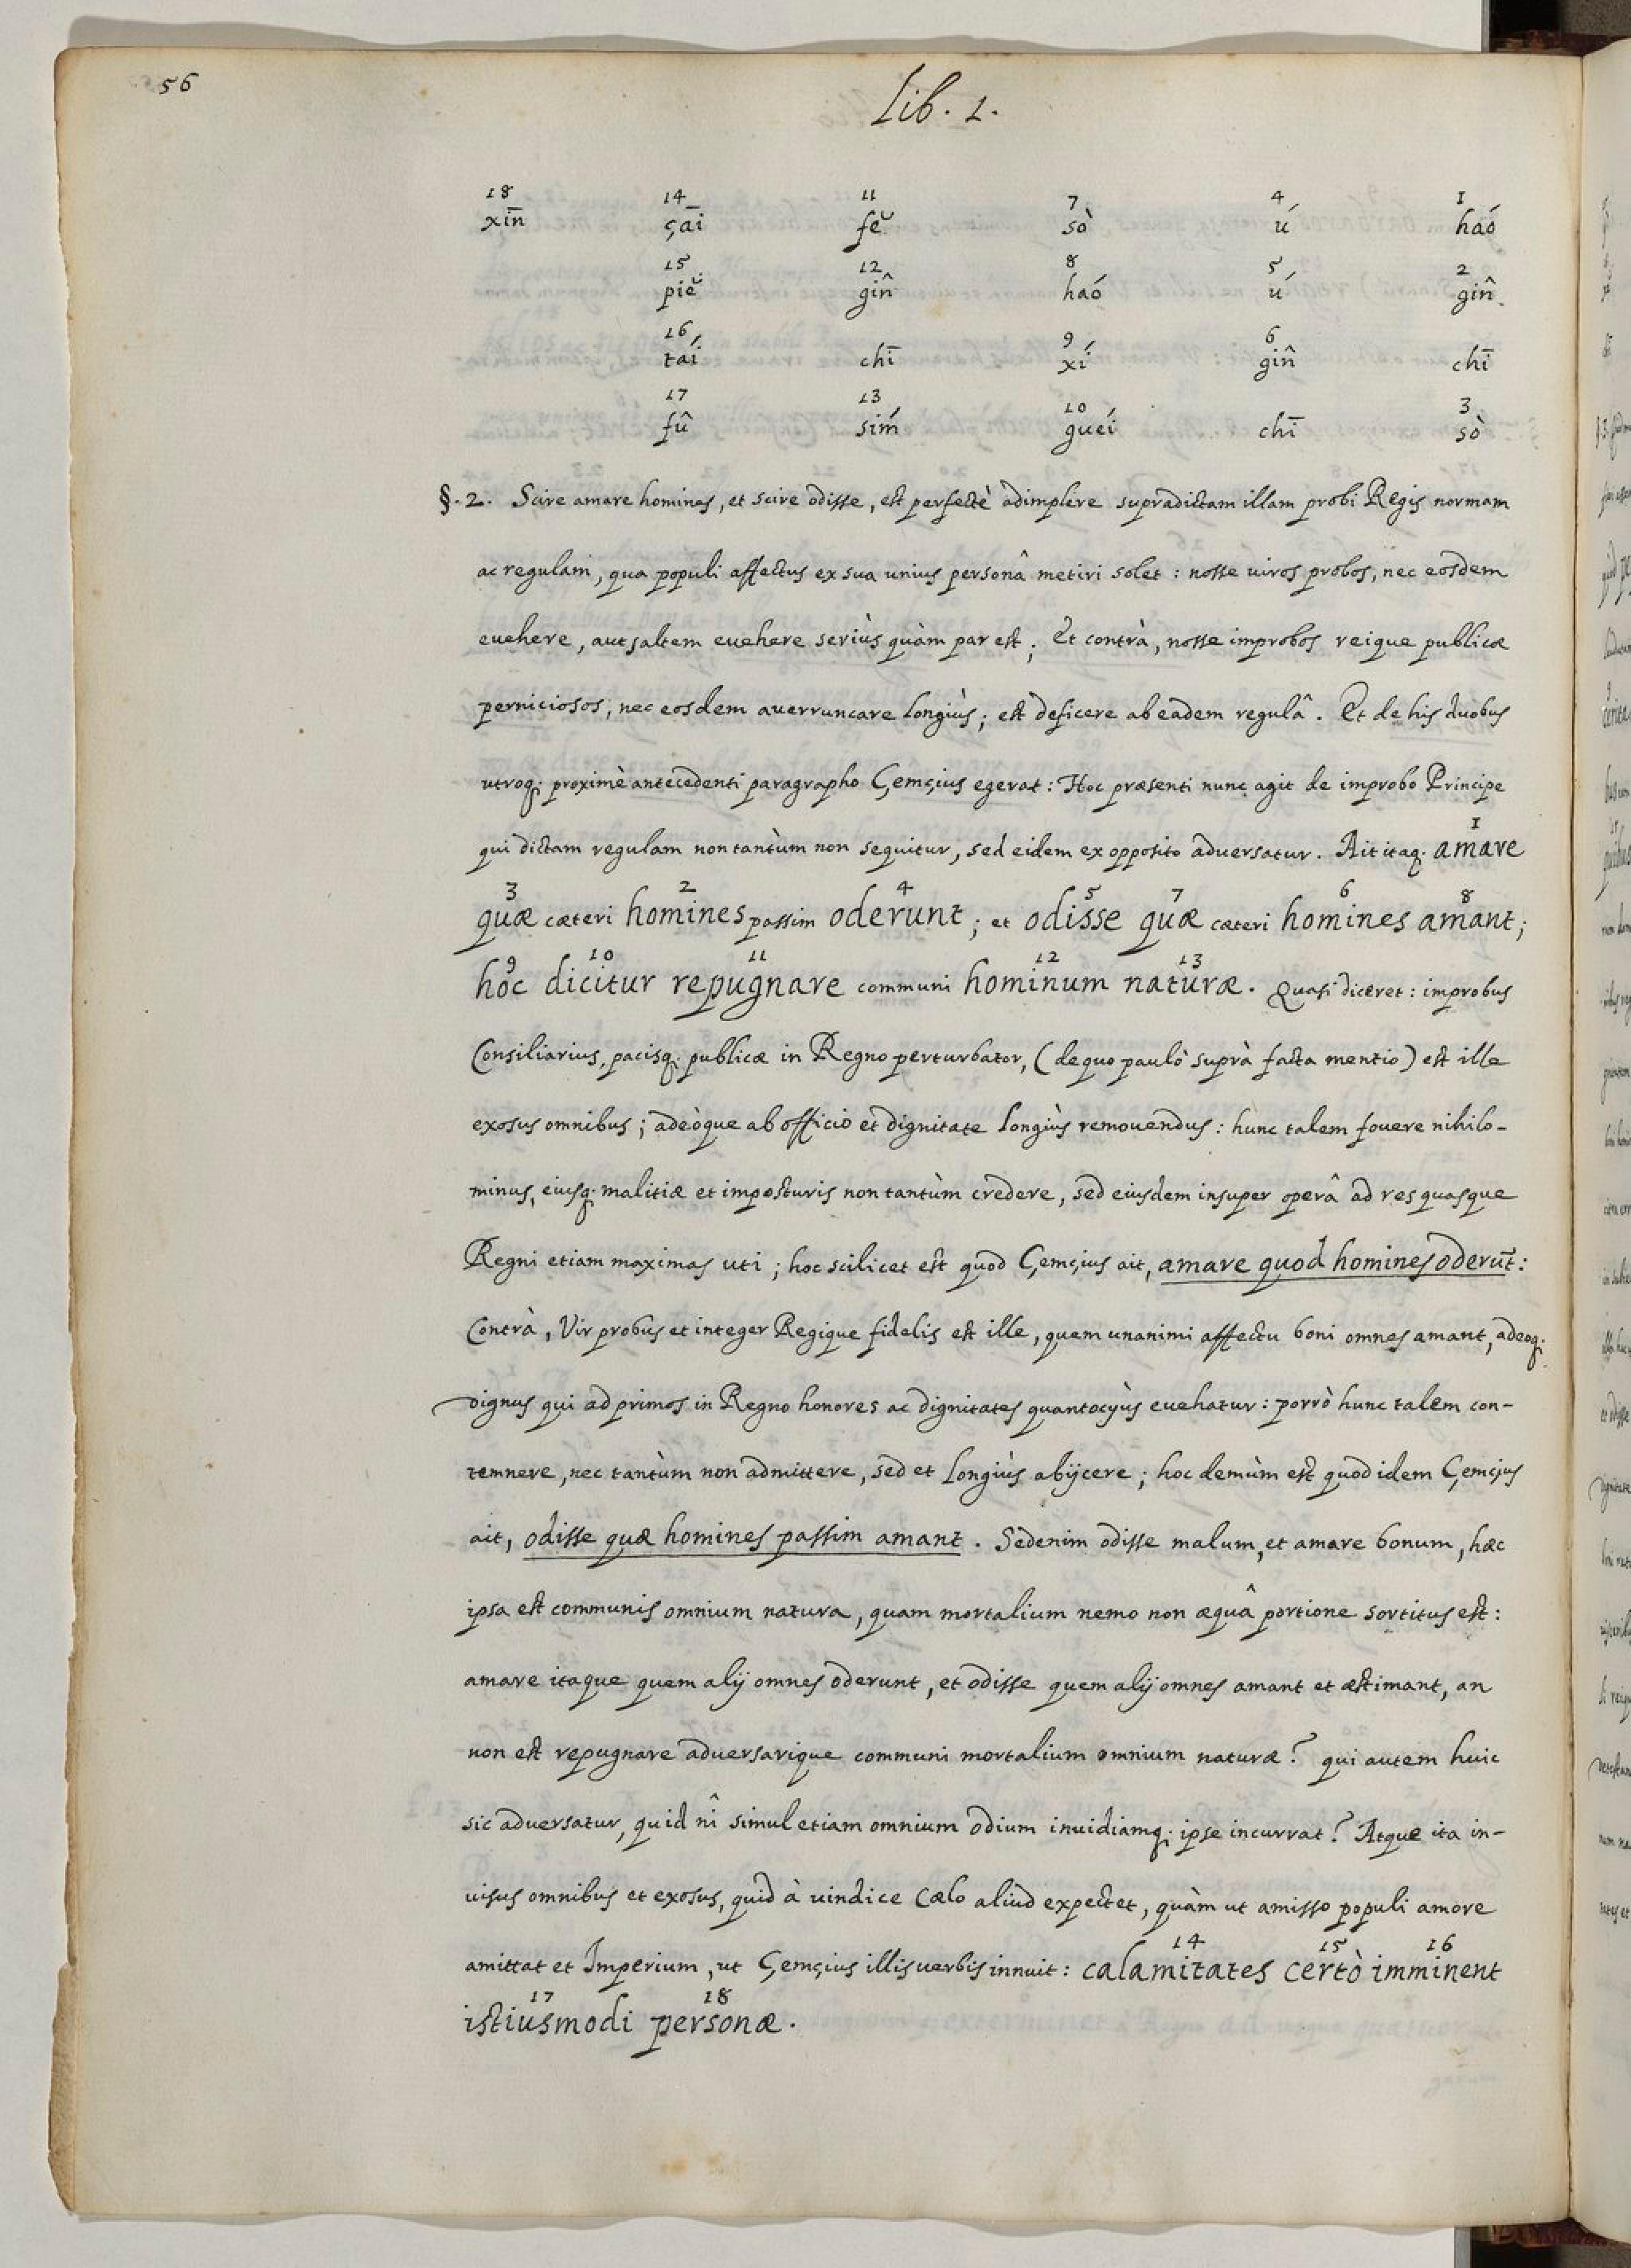 56
Lib. 1.
18 14 11 7 4 1
xīn çāi fĕ sò ú haó
15 12 8 5 2
piĕ gîn haó ú gîn
16 9 6
taí chī xí gîn chī
17 13 10 3
fû sím gueí chī sò
§. 2. Scire amare homines, et scire odisse, est perfectè adimplere supradictam illam probi Regis normam
ac regulam, qua populi affectus ex sua unius personâ metiri solet: nosse viros probos, nec eosdem
evehere, aut saltem evehere seriùs quàm par est; Et contrà, nosse improbos reique publicæ
perniciosos, nec eosdem averruncare longiùs; est deficere ab eadem regulâ. Et de his duobus
utroq; proximè antecedenti paragrapho Çemçius egerat: Hoc præsenti nunc agit de improbo Principe
qui dictam regulam non tantùm non sequitur, sed eidem ex opposito adversatur. Ait itaq; amare
3 2 4 5 7 6 8
quæ cæteri homines passim oderunt; et odisse quæ cæteri homines amant;
9 10 11 12 13
hoc dicitur repugnare communi hominum naturæ. Quasi diceret: improbus
Consiliarius, pacisq; publicæ in Regno perturbator, (de quo paulò suprà facta mentio) est ille
exosus omnibus; adeòque ab officio et dignitate longiùs removendus: hunc talem fovere nihilo-
minus, eiusq; malitiæ et imposturis non tantùm credere, sed eiusdem insuper operâ ad res quasque
Regni etiam maximas uti; hoc scilicet est quod Çemçius ait, amare quod homines oderūt:
Contrà, Vir probus et integer Regique fidelis est ille, quem unanimi affectu boni omnes amant, adeoq;
dignus qui ad primos in Regno honores ac dignitates quantocyùs evehatur: porrò hunc talem con-
temnere, nec tantùm non admittere, sed et longiùs abijcere; hoc demùm est quod idem Çemçius
ait, odisse quæ homines passim amant. Sedenim odisse malum, et amare bonum, hæc
ipsa est communis omnium natura, quam mortalium nemo non æquâ portione sortitus est:
amare itaque quem alij omnes oderunt, et odisse quem alij omnes amant et æstimant, an
non est repugnare adversarique communi mortalium omnium naturæ? qui autem huic
sic adversatur, quid nî simul etiam omnium odium invidiamq; ipse incurrat? Atque ita in-
visus omnibus et exosus, quid à vindice Cælo aliud expectet, quàm ut amisso populi amore
14 15 16
amittat et Imperium, ut Çemçius illis verbis innuit: calamitates certò imminent
17 18
istiusmodi personæ.